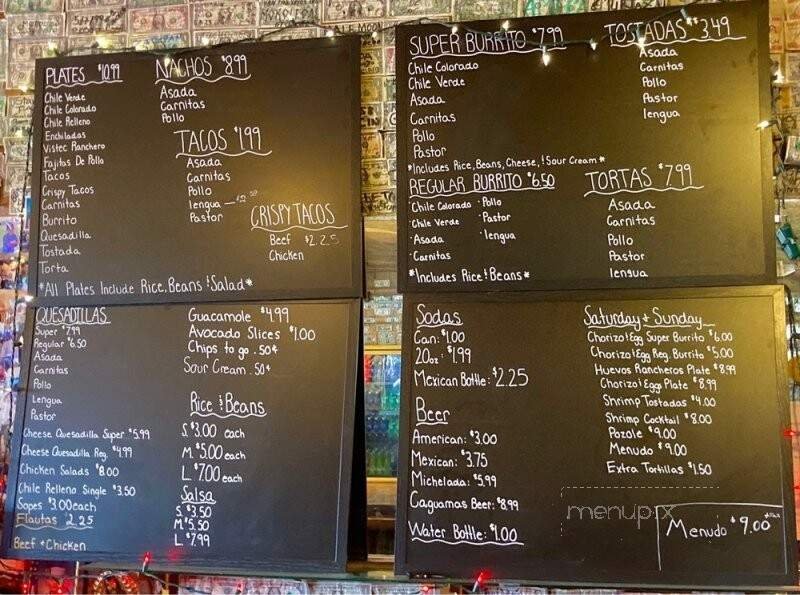 PLATES $10.99
Chile Verde
Chile Colorado
Chile Relleno
Enchiladas
Vistec Ranchero
Fajitas De Pollo
Tacos
Crispy Tacos
Carnitas
Burrito
Quesadilla
Tostada
Torta
*All Plates Include Rice, Beans & Salad*
NACHOS $8.99
Asada
Carnitas
Pollo
TACOS $1.99
Asada
Carnitas
Pollo
lengua
Pastor
CRISPY TACOS
Beef $2.25
Chicken
SUPER BURRITO $7.99
Chile Colorado
Chile Verde
Asada
Carnitas
Pollo
Pastor
*Includes Rice, Beans, Cheese, & Sour Cream*
TOSTADAS $3.49
Asada
Carnitas
Pollo
Pastor
lengua
REGULAR BURRITO $6.50
·Chile Colorado ·Pollo
·Chile Verde ·Pastor
·Asada ·lengua
·Carnitas
*Includes Rice & Beans*
TORTAS $7.99
Asada
Carnitas
Pollo
Pastor
lengua
QUESADILLAS
Super $7.99
Regular $6.50
Asada
Carnitas
Pollo
Lengua
Pastor
Cheese Quesadilla Super $5.99
Cheese Quesadilla Reg. $4.99
Chicken Salads $8.00
Chile Relleno Single $3.50
Sopes $3.00 each
Flautas $2.25
Beef + Chicken
Guacamole $4.99
Avocado Slices $1.00
Chips to go .50¢
Sour Cream .50¢
Rice & Beans
S. $3.00 each
M. $5.00 each
L. $7.00 each
Salsa
S $3.50
M $5.50
L $7.99
Sodas
Can: $1.00
20oz: $1.99
Mexican Bottle: $2.25
Beer
American: $3.00
Mexican: $3.75
Michelada: $5.99
Caguamas Beer: $8.99
Water Bottle: $1.00
Saturday & Sunday
Chorizo & Egg Super Burrito $6.00
Chorizo & Egg Reg. Burrito $5.00
Huevos Rancheros Plate $8.99
Chorizo & Eggs Plate $8.99
Shrimp Tostadas $4.00
Shrimp Cocktail $8.00
Pozole $9.00
Menudo $9.00
Extra Tortillas $1.50
menupix
Menudo $9.00